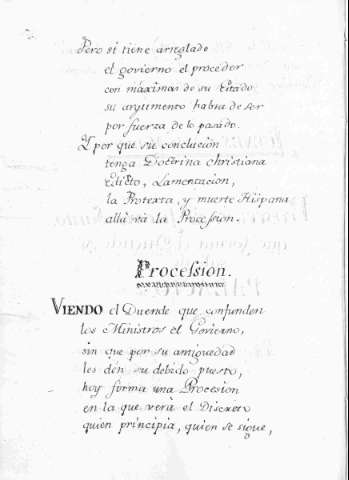 Pero si tiene arreglado
el govierno el proceder
con máximas de su Estado
su argumento habra de ser
por fuerza de lo pasado.
Y por que su conclusion
tenga Doctrina christiana
edicto, Lamentacion,
la Protexta, y muerte Hispana
allá va la Procession.
Procession.
VIENDO el Duende que confunden
los Ministros el Govierno,
sin que por su antiguedad
les dén su debido puesto,
hoy forma una Procesion
en la que verá el Discreto
quien principia, quien se sigue,